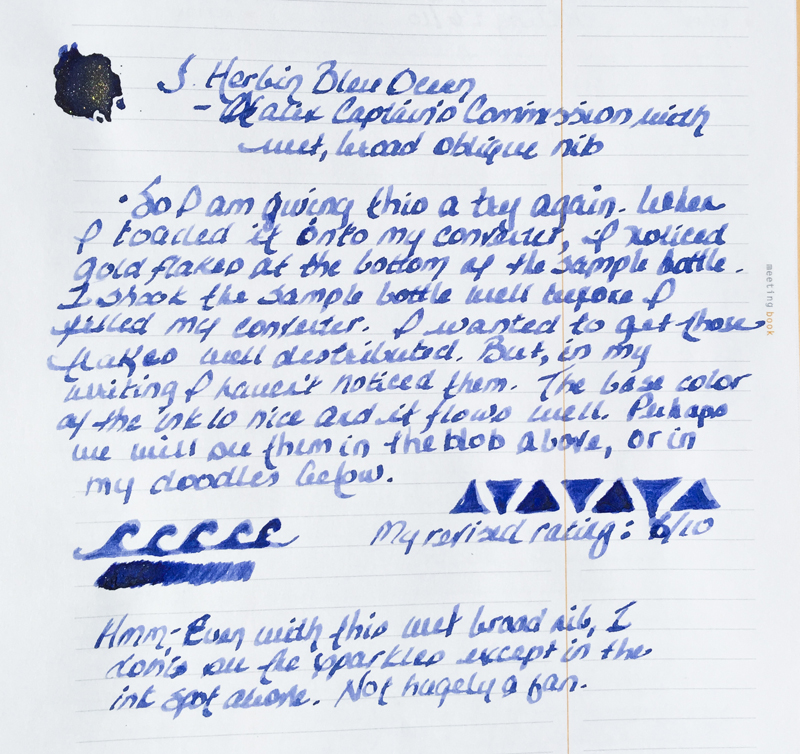 J. Herbin Bleu Ocean
- Captain's Commission with
wet, broad oblique nib
• So I am giving this a try again. When
I loaded it onto my converter, I noticed
gold flakes at the bottom of the sample bottle.
I shook the sample bottle well before I
filled my converter. I wanted to get those
flakes well distributed. But, in my
writing I haven't noticed them. The base color
of the ink is nice and it flows well. Perhaps
we will see them in the blob above, or in
my doodles below.
My revised rating: 6/10
Hmm- Even with this wet broad nib, I
don't see the sparkles except in the
ink spot above. Not hugely a fan.
meeting book